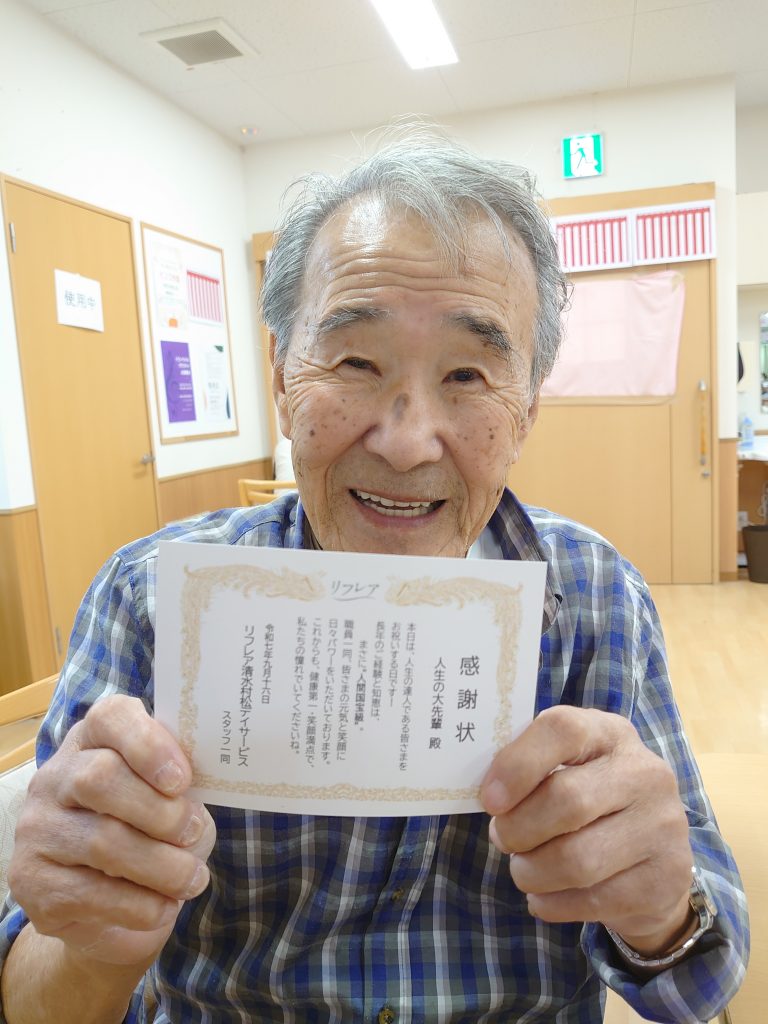 使用中
リフレア
感謝状
人生の大先輩 殿
本日は、人生の達人である皆さまを
お祝いする日です!
長年のご経験と知恵は、
まさに"人間国宝級"。
職員一同、皆さまの元気と笑顔に
日々パワーをいただいております。
これからも、健康第一・笑顔満点で、
私たちの憧れでいてくださいね。
令和七年九月十六日
リフレア清水村松デイサービス
スタッフ一同